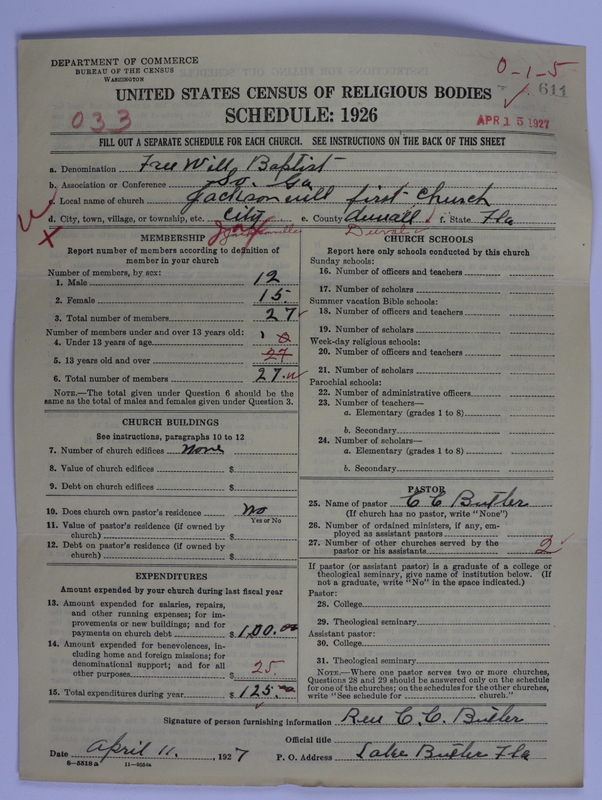 DEPARTMENT OF COMMERCE
BUREAU OF THE CENSUS
WASHINGTON
0-1-5
611
UNITED STATES CENSUS OF RELIGIOUS BODIES
SCHEDULE: 1926
033
APR 15 1927
FILL OUT A SEPARATE SCHEDULE FOR EACH CHURCH. SEE INSTRUCTIONS ON THE BACK OF THIS SHEET
a. Denomination Free Will Baptist
b. Association or Conference So. Ga
c. Local name of church Jacksonvill first Church
d. City, town, village, or township, etc. City e. County duvall f. State Fla
Jacksonville Duval
MEMBERSHIP
Report number of members according to definition of
member in your church
Number of members, by sex:
1. Male 12
2. Female 15
3. Total number of members 27
Number of members under and over 13 years old:
4. Under 13 years of age
5. 13 years old and over 27
6. Total number of members 27
NOTE.—The total given under Question 6 should be the
same as the total of males and females given under Question 3.
CHURCH BUILDINGS
See instructions, paragraphs 10 to 12
7. Number of church edifices none
8. Value of church edifices $
9. Debt on church edifices $
10. Does church own pastor's residence No
Yes or No
11. Value of pastor's residence (if owned by
church) $
12. Debt on pastor's residence (if owned by
church) $
EXPENDITURES
Amount expended by your church during last fiscal year
13. Amount expended for salaries, repairs,
and other running expenses; for im-
provements or new buildings; and for
payments on church debt $ 100.00
14. Amount expended for benevolences, in-
cluding home and foreign missions; for
denominational support; and for all
other purposes $ 25.
15. Total expenditures during year $ 125.00
CHURCH SCHOOLS
Report here only schools conducted by this church
Sunday schools:
16. Number of officers and teachers
17. Number of scholars
Summer vacation Bible schools:
18. Number of officers and teachers
19. Number of scholars
Week-day religious schools:
20. Number of officers and teachers
21. Number of scholars
Parochial schools:
22. Number of administrative officers
23. Number of teachers—
a. Elementary (grades 1 to 8)
b. Secondary
24. Number of scholars—
a. Elementary (grades 1 to 8)
b. Secondary
PASTOR
25. Name of pastor C C Butler
(If church has no pastor, write "None")
26. Number of ordained ministers, if any, em-
ployed as assistant pastors
27. Number of other churches served by the
pastor or his assistants 2
If pastor (or assistant pastor) is a graduate of a college or
theological seminary, give name of institution below. (If
not a graduate, write "No" in the space indicated.)
Pastor:
28. College
29. Theological seminary
Assistant pastor:
30. College
31. Theological seminary
NOTE.—Where one pastor serves two or more churches,
Questions 28 and 29 should be answered only on the schedule
for one of the churches; on the schedules for the other churches,
write "See schedule for church."
Signature of person furnishing information Rev C. C. Butler
Official title
Date April 11, 1927 P. O. Address Lake Butler Fla
8-5518a